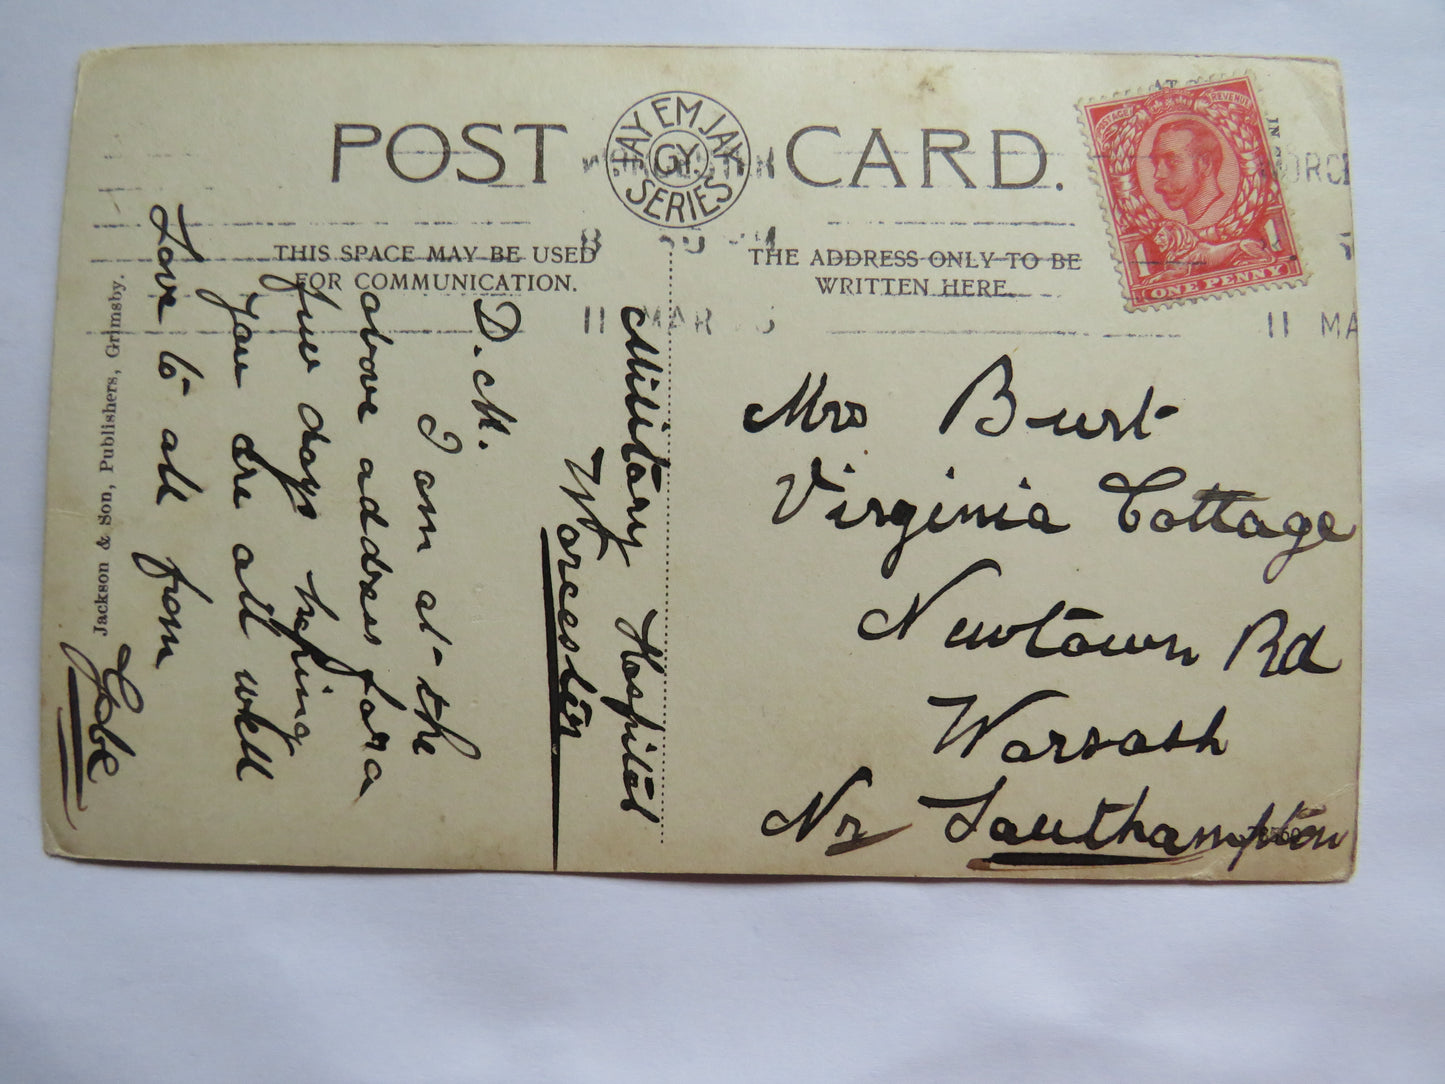 POST CARD.
JAY EM JAY
GY.
SERIES
THIS SPACE MAY BE USED
FOR COMMUNICATION.
THE ADDRESS ONLY TO BE
WRITTEN HERE.
POSTAGE REVENUE
1 1
ONE PENNY
11 MAR
11 MA
Millitary Hospital
Worcester
D. M.
I am at the
above address for a
few days hoping
you are all well
Love to all from
Gobe
Jackson & Son, Publishers, Grimsby.
Mrs Burt
Virginia Cottage
Newtown Rd
Warsash
Nr Southampton